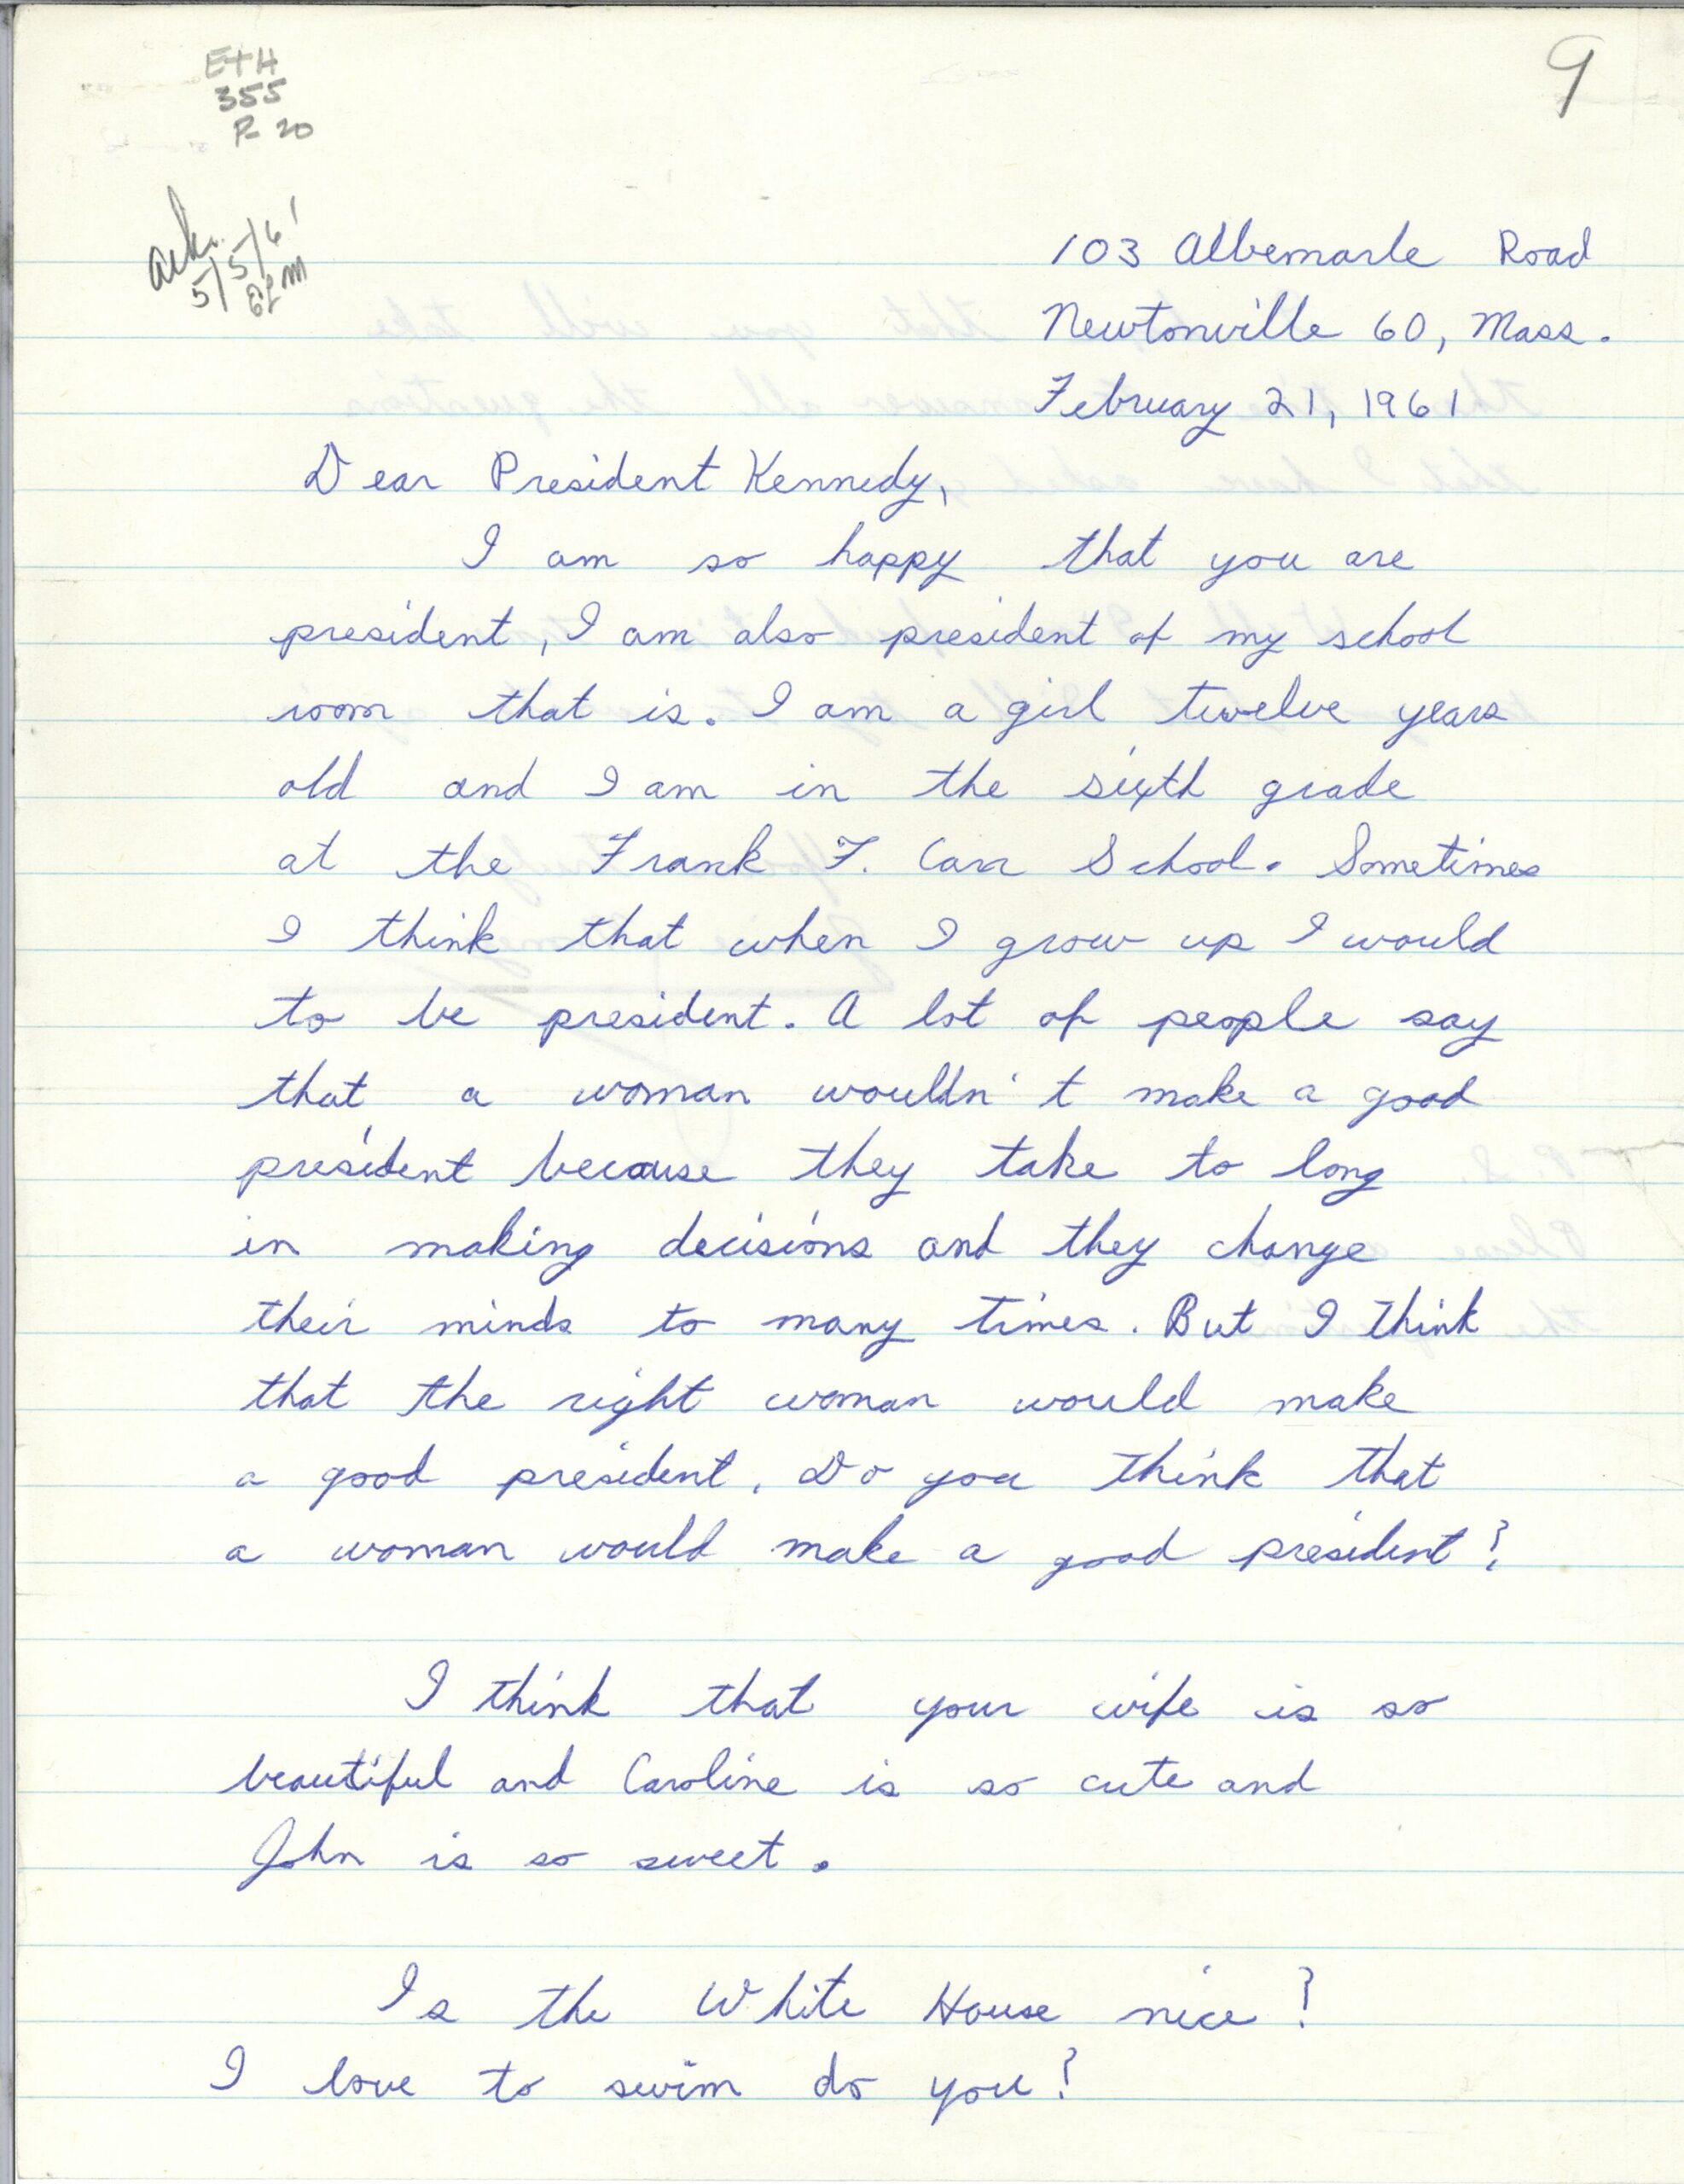 ETH
355
P- 20
9
ack.
5/5/61
103 Albemarle Road
Newtonville 60, Mass.
February 21, 1961
Dear President Kennedy,
I am so happy that you are
president, I am also president of my school
room that is. I am a girl twelve years
old and I am in the sixth grade
at the Frank F. Carr School. Sometimes
I think that when I grow up I would
to be president. A lot of people say
that a woman wouldn't make a good
president because they take to long
in making decisions and they change
their minds to many times. But I think
that the right woman would make
a good president. Do you think that
a woman would make a good president?
I think that your wife is so
beautiful and Caroline is so cute and
John is so sweet.
Is the White House nice?
I love to swim do you?